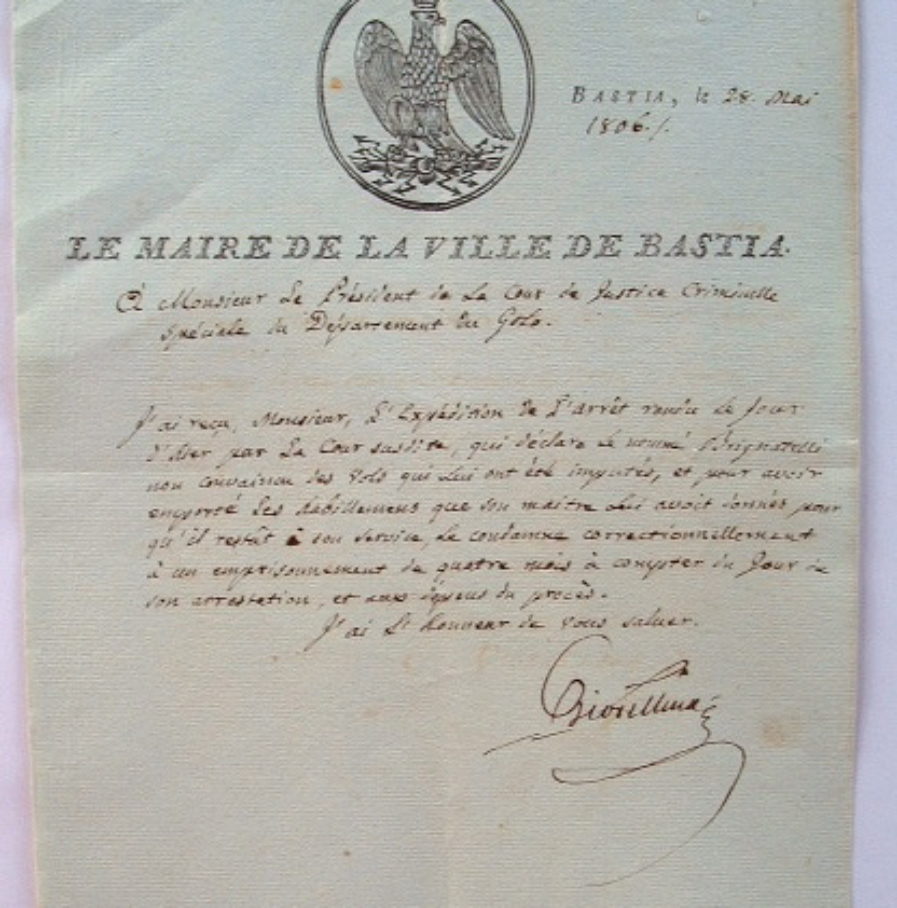 BASTIA, le 28. Mai
1806./.
LE MAIRE DE LA VILLE DE BASTIA.
A Monsieur Le Président de La Cour de Justice Criminelle
Spéciale du Département du Golo.
J'ai reçu, Monsieur, L'Expédition de L'arrêt rendu le Jour
d'hier par La Cour susdite, qui déclare le nommé
non convaincu des Vols qui Lui ont été imputés, et pour avoir
emporté Les habillemens que son maitre Lui avoit donnés pour
qu'il restât à son service, Le condamne correctionnellement
à un emprisonnement de quatre mois à compter du Jour de
son arrestation, et aux dépens du procès.
J'ai L'honneur de Vous saluer.